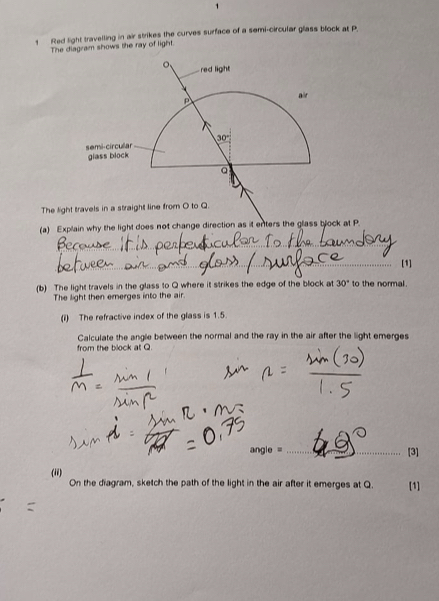 1
1 Red light travelling in air strikes the curves surface of a semi-circular glass block at P.
The diagram shows the ray of light.
O
red light
P
air
30°
semi-circular
glass block
Q
The light travels in a straight line from O to Q.
(a) Explain why the light does not change direction as it enters the glass block at P.
Because it is perpendicular to the boundary
between air and glass / surface [1]
(b) The light travels in the glass to Q where it strikes the edge of the block at 30° to the normal.
The light then emerges into the air.
(i) The refractive index of the glass is 1.5.
Calculate the angle between the normal and the ray in the air after the light emerges
from the block at Q.
1/n = sin i / sin r sin r = sin (30) / 1.5
sin i = sin r · n = = 0.75
angle = [3]
(ii)
On the diagram, sketch the path of the light in the air after it emerges at Q. [1]
=